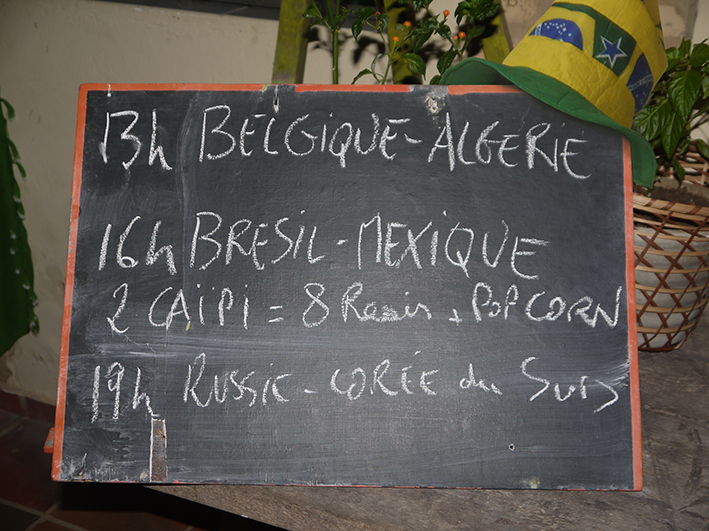 13h BELGIQUE-ALGERIE
16h BRESIL-MEXIQUE
2 CAIPI = 8 Reais + POPCORN
19h RUSSIE-CORÉE du SUD